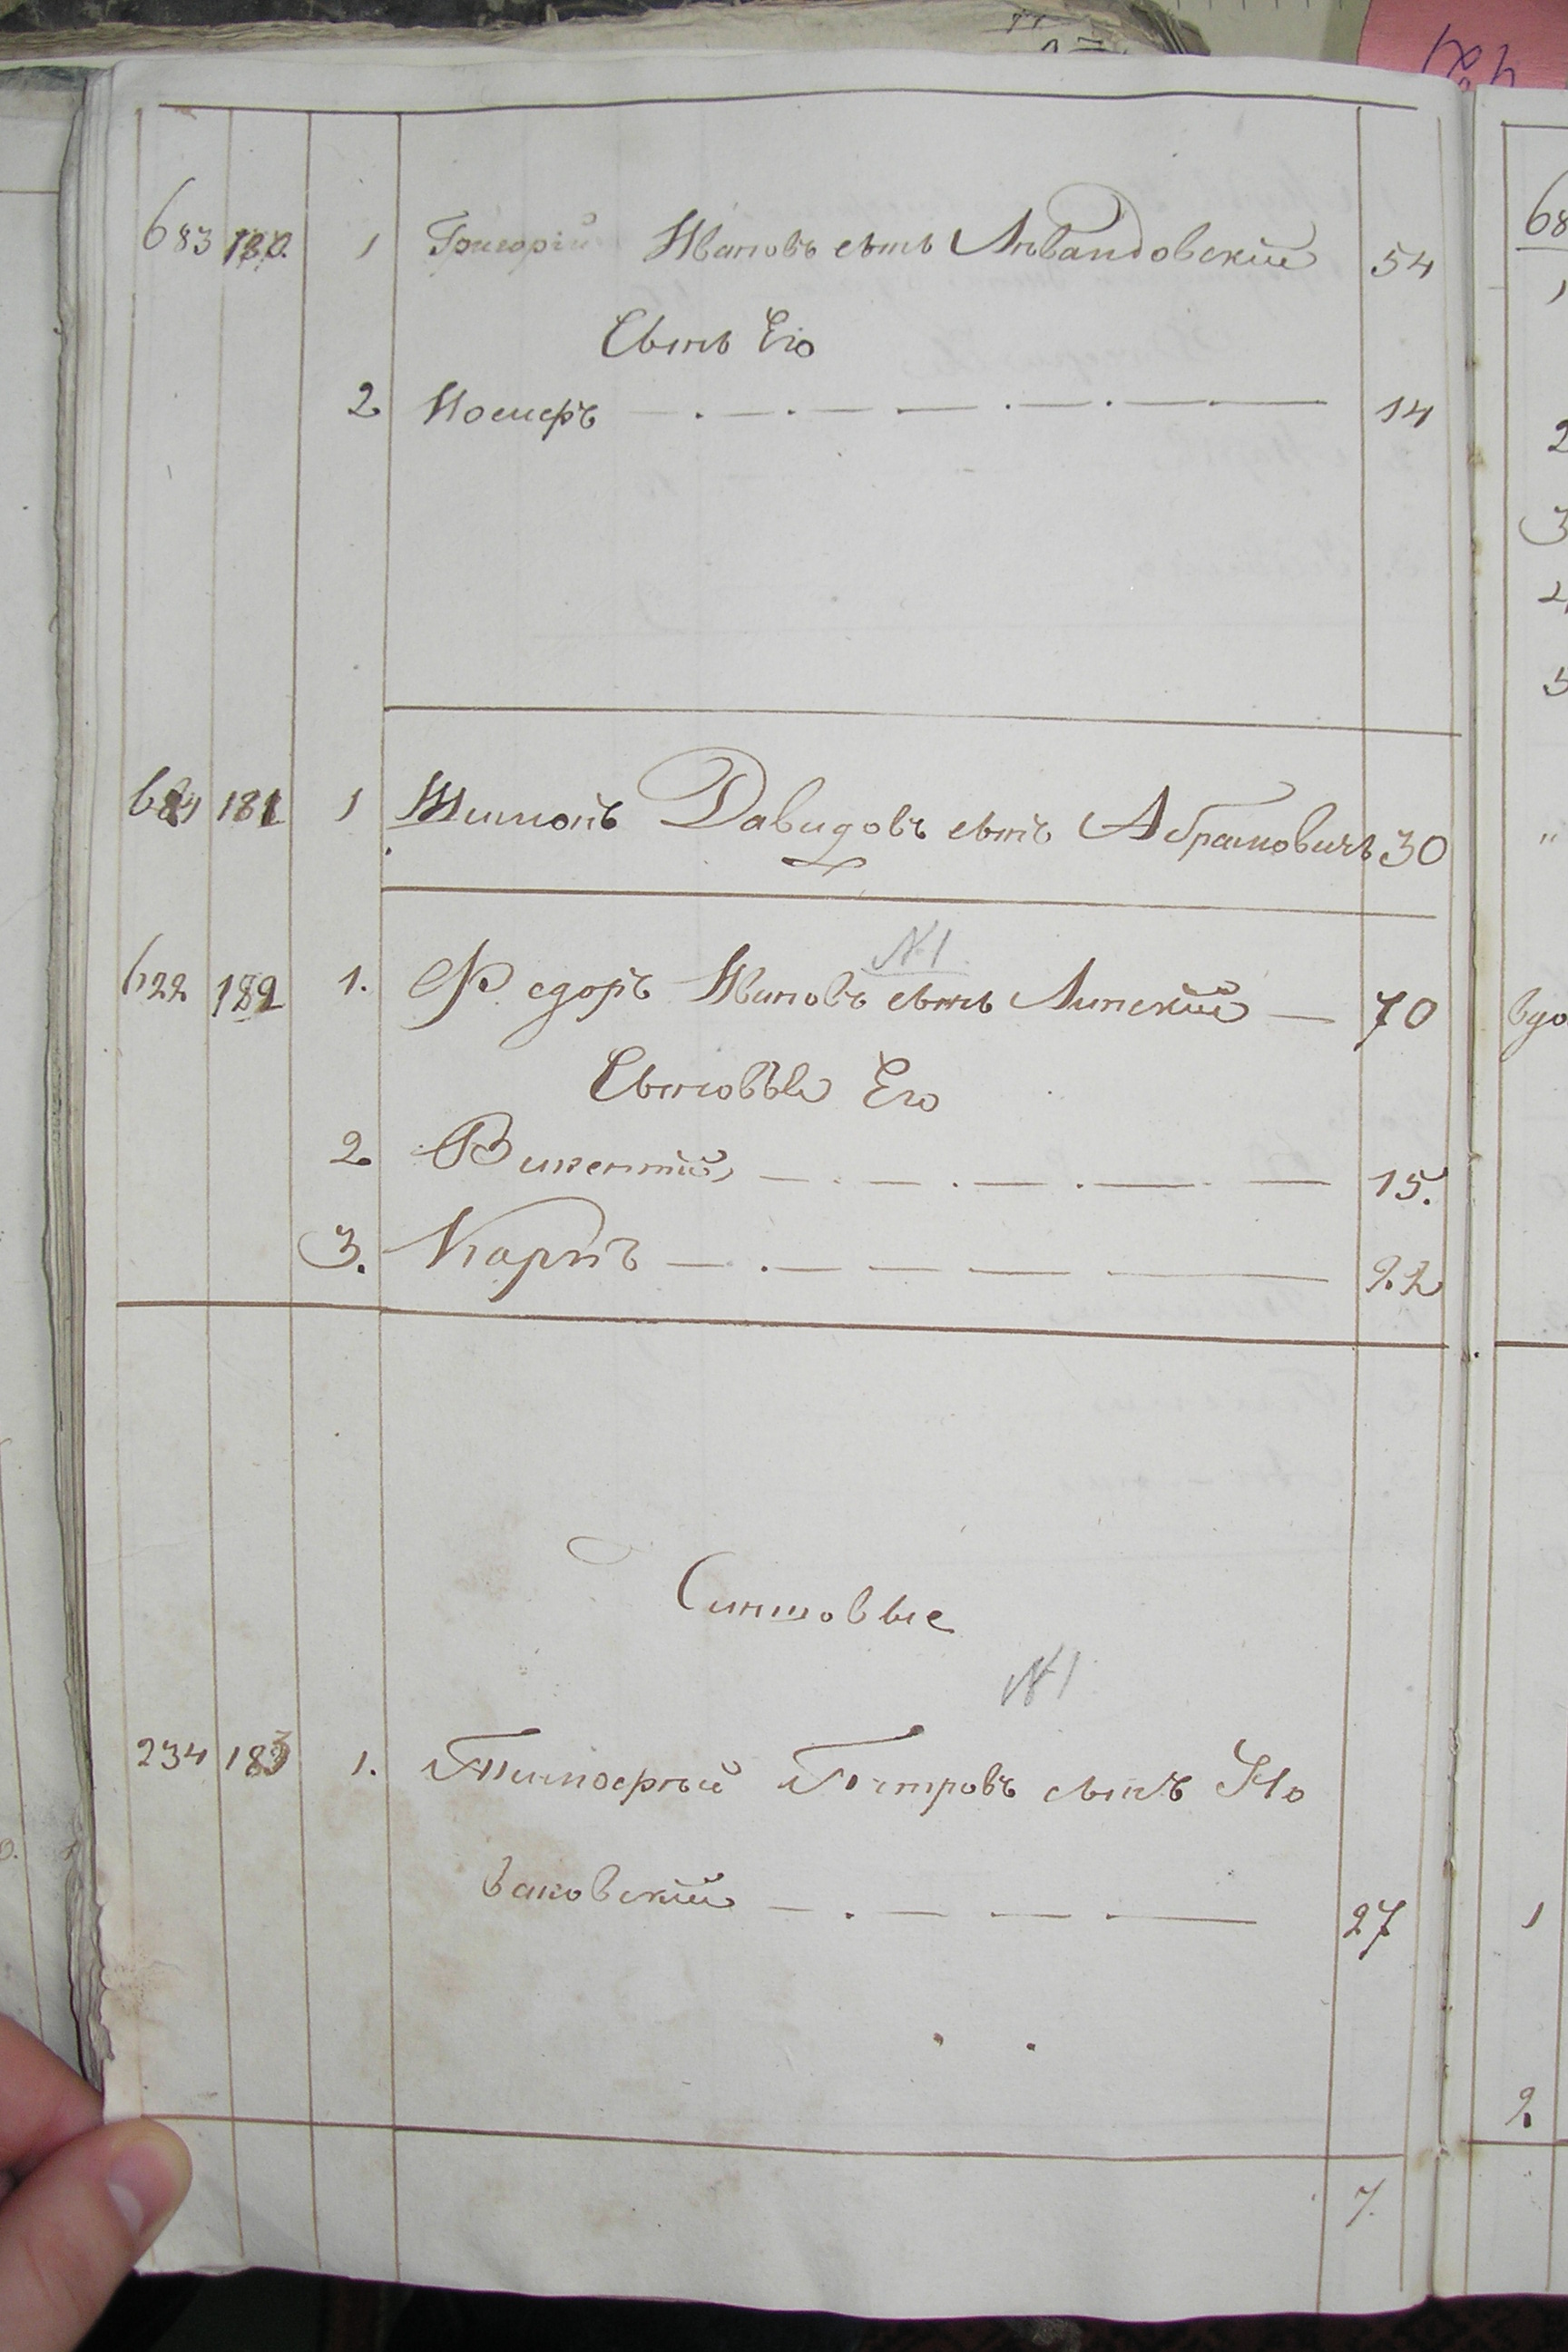 683 180. 1 Григорій Ивановъ сынъ Левандовскій 54
Сынъ Его
2 Иосифъ 14
684 181 1 Шимонъ Давидовъ сынъ Абрамовичъ 30
№1
622 182 1. Федоръ Ивановъ сынъ Липскій 70
Сыновья Его
2. Викентій 15.
3. Карпъ 22
№1
234 183 1. Тимофей Петровъ сынъ Но
ваковскій 27
7.
68
1
2
3
4
5
"
вдо
1
2